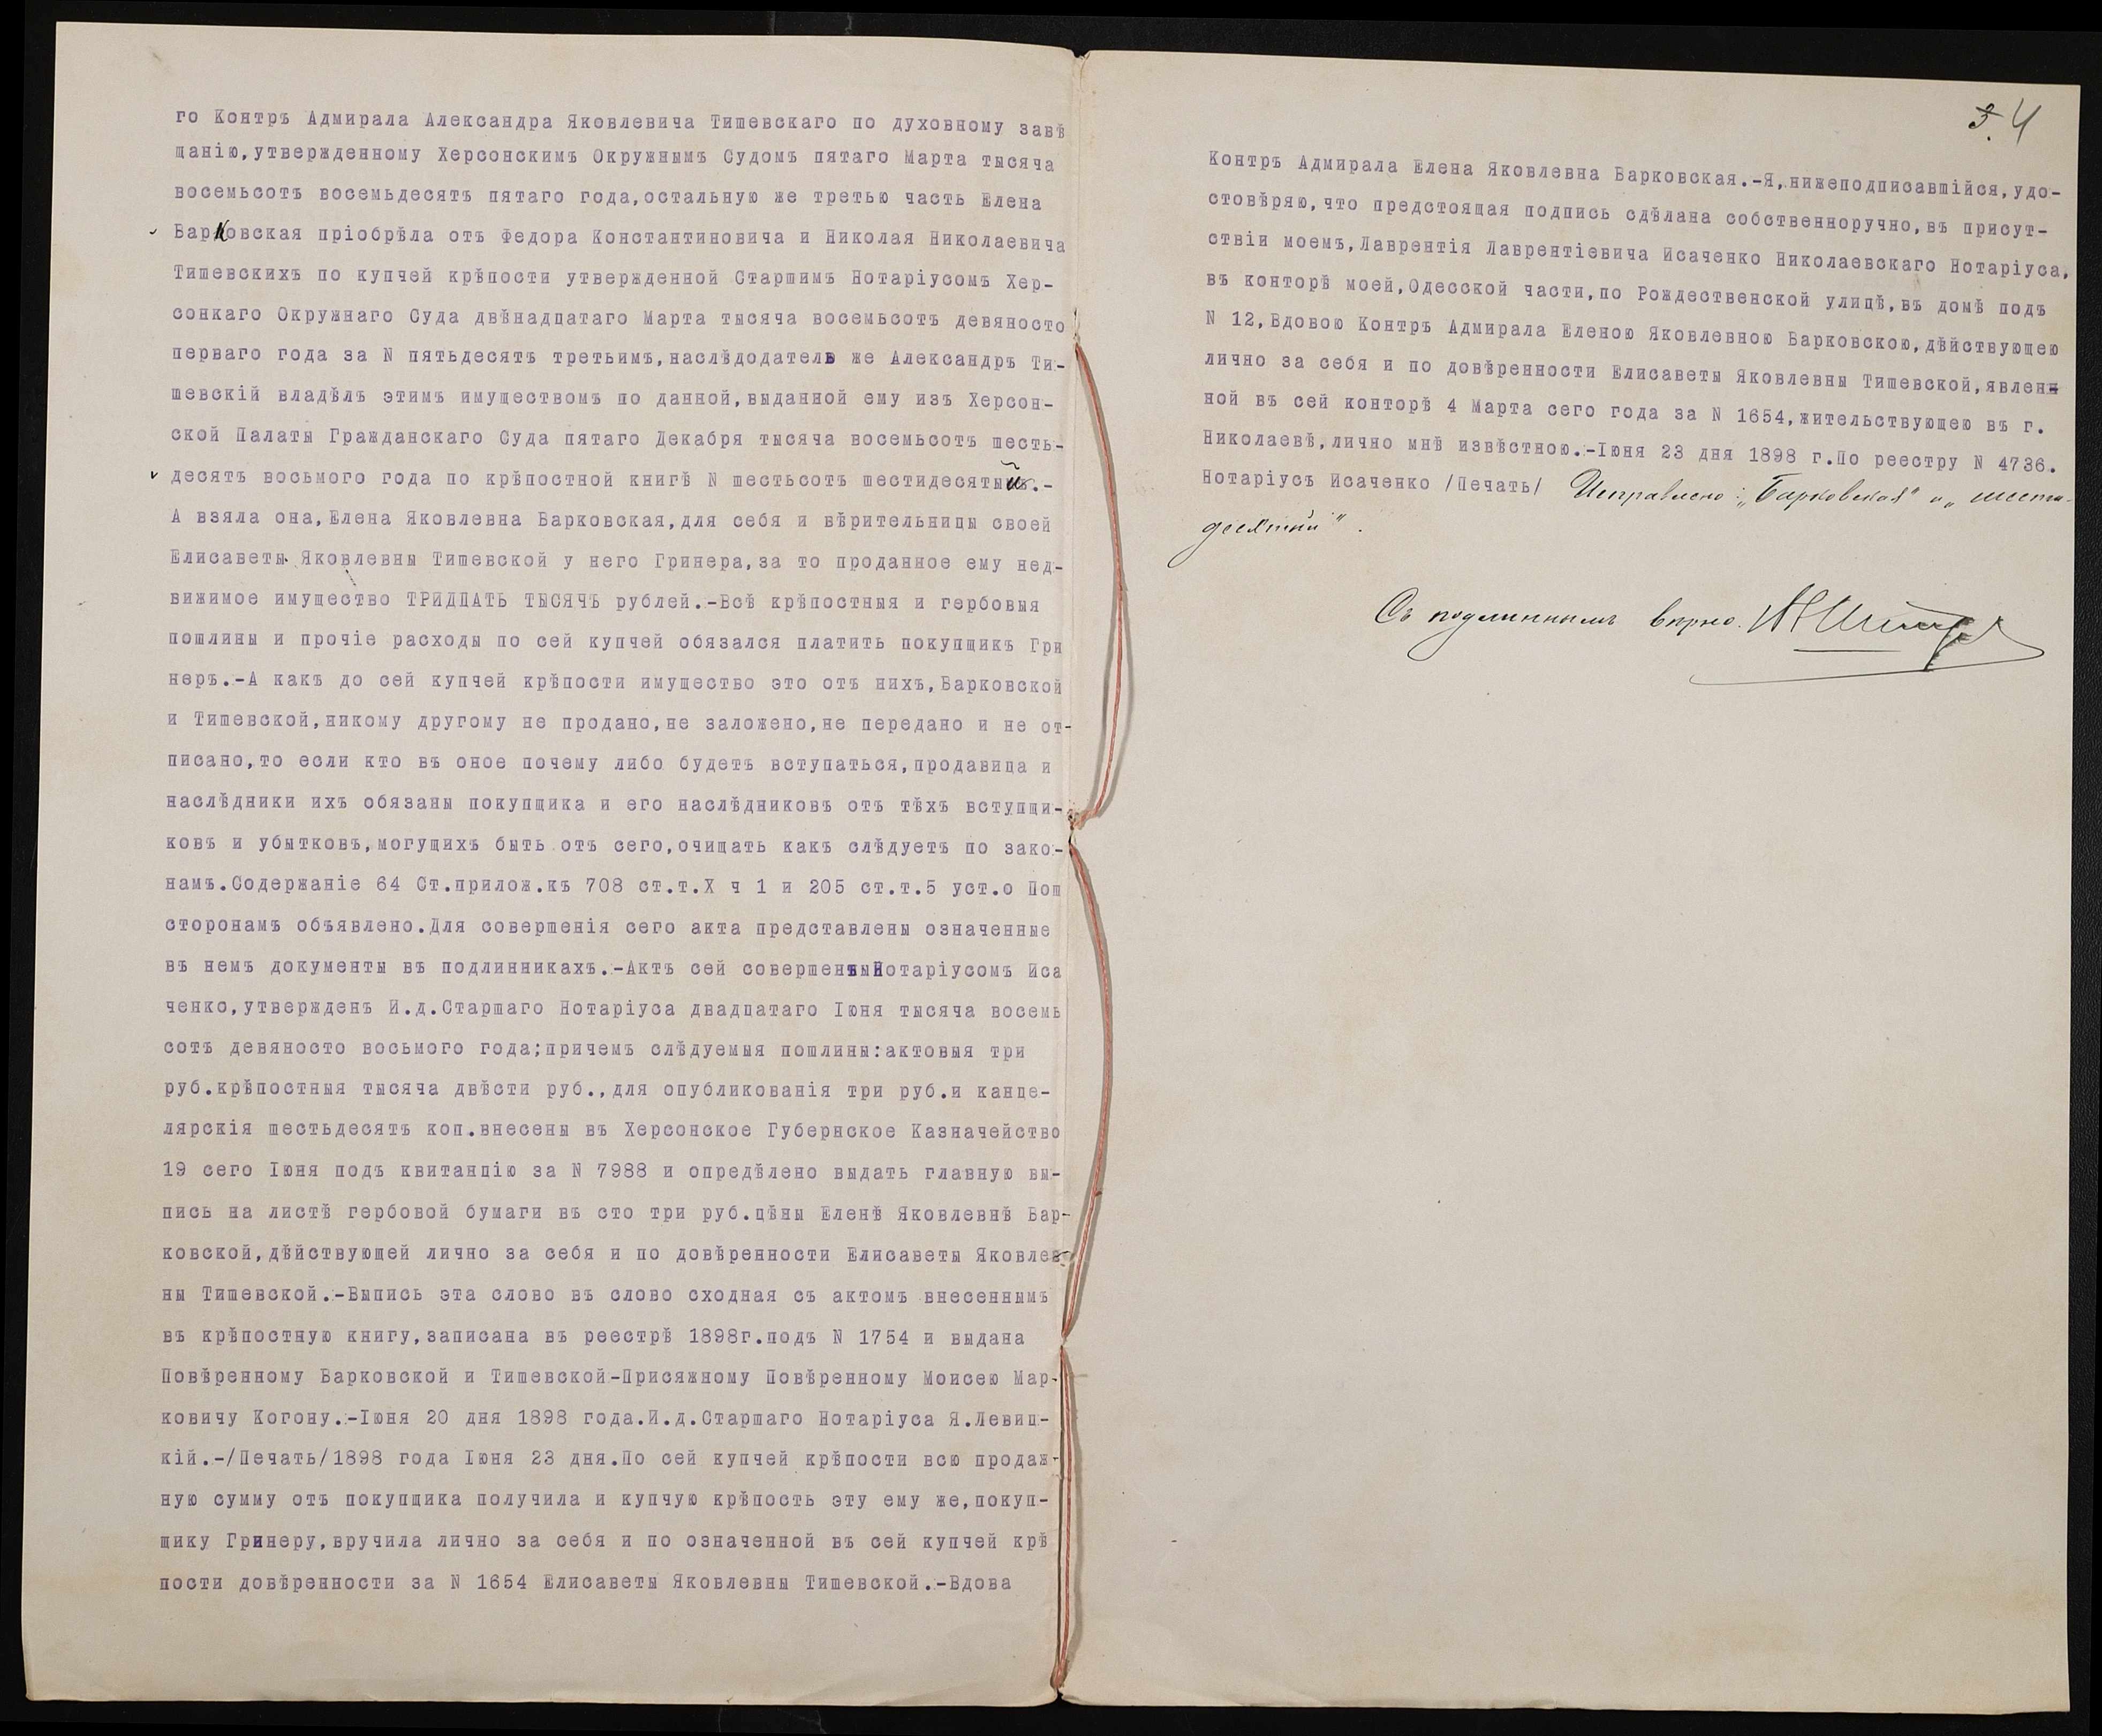 го Контръ Адмирала Александра Яковлевича Тишевскаго по духовному завѣ
щанію,утвержденному Херсонскимъ Окружнымъ Судомъ пятаго Марта тысяча
восемьсотъ восемьдесятъ пятаго года,остальную же третью часть Елена
Барковская пріобрѣла отъ Федора Константиновича и Николая Николаевича
Тишевскихъ по купчей крѣпости утвержденной Старшимъ Нотаріусомъ Хер-
сонкаго Окружнаго Суда двѣнадцатаго Марта тысяча восемьсотъ девяносто
перваго года за N пятьдесятъ третьимъ,наслѣдодатель же Александръ Ти-
шевскій владѣлъ этимъ имуществомъ по данной,выданной ему изъ Херсон-
ской Палаты Гражданскаго Суда пятаго Декабря тысяча восемьсотъ шесть-
десятъ восьмого года по крѣпостной книгѣ N шестьсотъ шестидесятый.-
А взяла она,Елена Яковлевна Барковская,для себя и вѣрительницы своей
Елисаветы Яковлевны Тишевской у него Гринера,за то проданное ему нед-
вижимое имущество ТРИДЦАТЬ ТЫСЯЧЪ рублей.-Всѣ крѣпостныя и гербовыя
пошлины и прочіе расходы по сей купчей обязался платить покупщикъ Гри
неръ.-А какъ до сей купчей крѣпости имущество это отъ нихъ,Барковской
и Тишевской,никому другому не продано,не заложено,не передано и не от-
писано,то если кто въ оное почему либо будетъ вступаться,продавица и
наслѣдники ихъ обязаны покупщика и его наслѣдниковъ отъ тѣхъ вступщи-
ковъ и убытковъ,могущихъ быть отъ сего,очищать какъ слѣдуетъ по зако-
намъ.Содержаніе 64 Ст.прилож.къ 708 ст.т.X ч 1 и 205 ст.т.5 уст.о Пош
сторонамъ объявлено.Для совершенія сего акта представлены означенные
въ немъ документы въ подлинникахъ.-Актъ сей совершенныйНотаріусомъ Иса
ченко,утвержденъ И.д.Старшаго Нотаріуса двадцатаго Іюня тысяча восемь
сотъ девяносто восьмого года;причемъ слѣдуемыя пошлины:актовыя три
руб.крѣпостныя тысяча двѣсти руб.,для опубликованія три руб.и канце-
лярскія шестьдесятъ коп.внесены въ Херсонское Губернское Казначейство
19 сего Іюня подъ квитанцію за N 7988 и опредѣлено выдать главную вы-
пись на листѣ гербовой бумаги въ сто три руб.цѣны Еленѣ Яковлевнѣ Бар-
ковской,дѣйствующей лично за себя и по довѣренности Елисаветы Яковлев-
ны Тишевской.-Выпись эта слово въ слово сходная съ актомъ внесеннымъ
въ крѣпостную книгу,записана въ реестрѣ 1898г.подъ N 1754 и выдана
Повѣренному Барковской и Тишевской-Присяжному Повѣренному Моисею Мар-
ковичу Когону.-Іюня 20 дня 1898 года.И.д.Старшаго Нотаріуса Я.Левиц-
кій.-/Печать/1898 года Іюня 23 дня.По сей купчей крѣпости всю продаж-
ную сумму отъ покупщика получила и купчую крѣпость эту ему же,покуп-
щику Гринеру,вручила лично за себя и по означенной въ сей купчей крѣ
пости довѣренности за N 1654 Елисаветы Яковлевны Тишевской.-Вдова
3. 4
Контръ Адмирала Елена Яковлевна Барковская.-Я,нижеподписавшійся,удо-
стовѣряю,что предстоящая подпись сдѣлана собственноручно,въ присут-
ствіи моемъ,Лаврентія Лаврентіевича Исаченко Николаевскаго Нотаріуса,
въ конторѣ моей,Одесской части,по Рождественской улицѣ,въ домѣ подъ
N 12,Вдовою Контръ Адмирала Еленою Яковлевною Барковскою,дѣйствующею
лично за себя и по довѣренности Елисаветы Яковлевны Тишевской,явлен
ной въ сей конторѣ 4 Марта сего года за N 1654,жительствующею въ г.
Николаевѣ,лично мнѣ извѣстною.-Іюня 23 дня 1898 г.По реестру N 4736.
Нотаріусъ Исаченко /Печать/ Исправлено: „Барковская" и „шести-
десятый".
Съ подлиннымъ вѣрно.